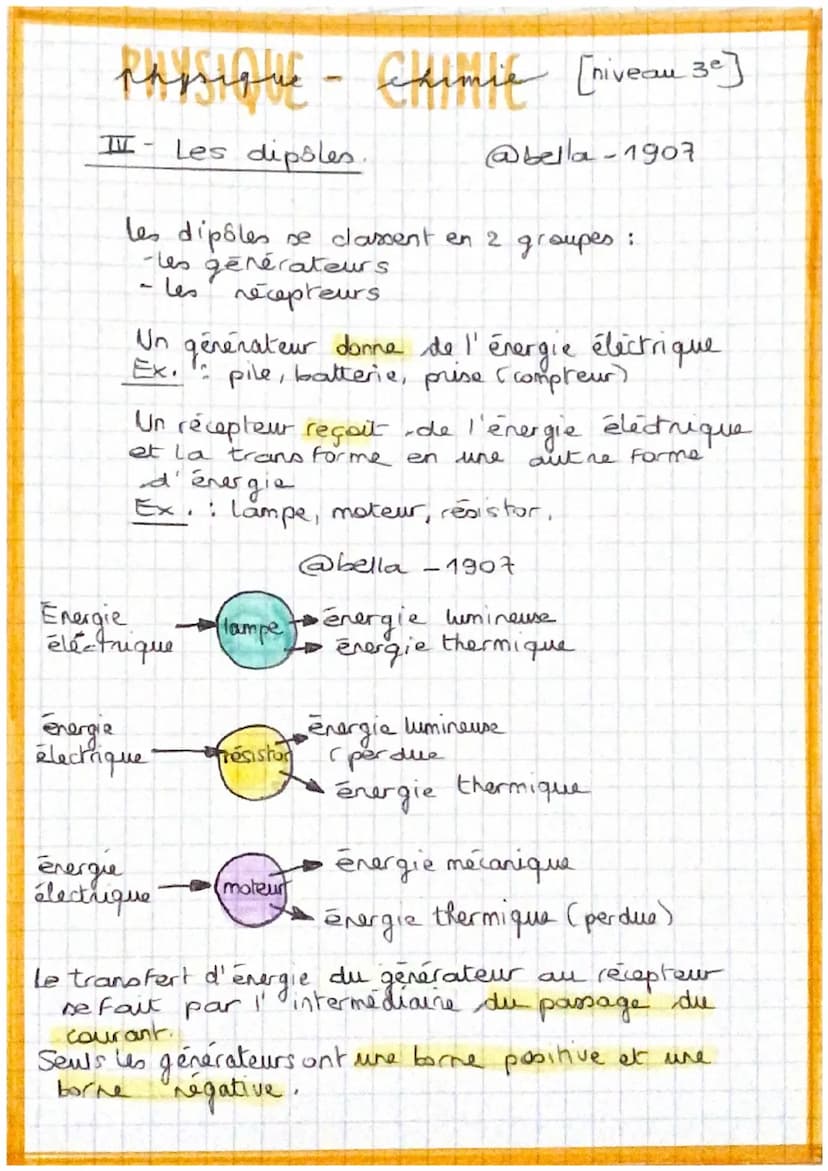 PHYSIQUE - CHIMIE [niveau 3e]
physique - chimie
IV - Les dipôles. @bella-1907
Les dipôles se classent en 2 groupes :
- les générateurs
- les récepteurs
Un générateur donne de l'énergie éléctrique
Ex. : pile, batterie, prise (compteur)
Un récepteur reçoit de l'énergie éléctrique
et la transforme en une autre forme
d'énergie
Ex. : lampe, moteur, résistor.
@bella - 1907
Energie
éléctrique
lampe
énergie lumineuse
énergie thermique
énergie
électrique
résistor
énergie lumineuse
(perdue
énergie thermique
énergie
électrique
moteur
énergie mécanique
énergie thermique (perdue)
Le transfert d'énergie du générateur au récepteur
se fait par l'intermédiaire du passage du
courant.
Seuls les générateurs ont une borne positive et une
borne négative.